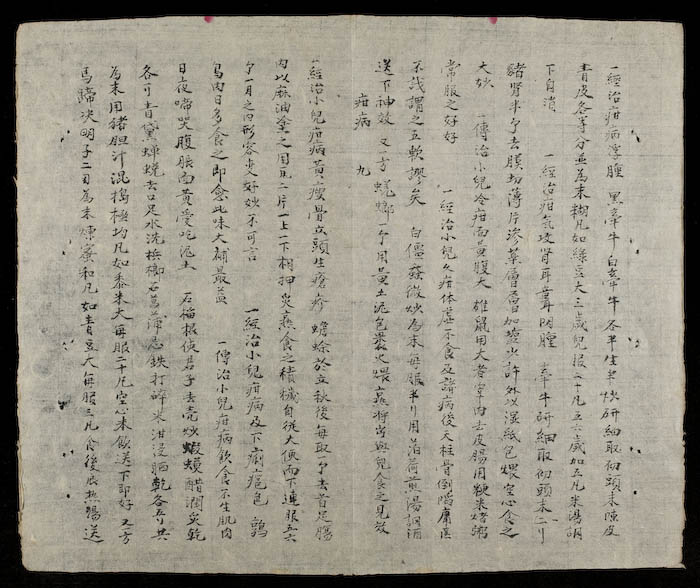 一經治疳病浮腫　黒牽牛白牽牛各半生半炒研細取初頭末陳皮
青皮各等分並為末糊凡如綠豆大三歲兒服二十凡五六歲加五凡米湯調
下自消　一經治疳氣攻腎耳聾陰腫　牽牛研細取初頭末二り
豬腎半个去膜切薄片滲藥層層加鹽少許外以湿紙包煨空心食之
大妙　一傳治小兒冷疳面黃腹大　雄鼠用大者宰肉去皮腸用粳米煮粥
常服之好好　一經治小兒久疳体羸不食及諸病後天柱骨倒醫庸医
不識謂之五軟謬矣　白僵蚕微炒為末每服半り用薄荷煎湯調
送下神效　又方蜣螂一个用黄土泥包裹火煨熹將與兒食之見效
疳病　九
一經治小兒疳病黄瘦骨立頭生瘡疹　蟾蜍於立秋後每取一个去首足腸
肉以麻油塗之用瓦二片一上一下相押炙熹食之積穢自従大便而下連服五六
个一月之内形容变好妙不可言　一經治小兒疳病及下痢瘡包　鶉
鳥肉日多食之即愈此味大補最益　一傳治小兒疳病飲食不生肌肉
日夜啼哭腹脹面黄愛吃泥土　石榴根使君子去壳炒蝦蟆醋潤炙乾
各り青黛蟬蛻去口足水洗梹榔石菖蒲忌鉄打碎米泔浸晒乾各五り共
為末用猪胆汁混搗極均凡如黍米大每服二十凡空心米飲送下即好　又方
馬蹄决明子二目為末煉蜜和凡如青豆大每服三凡食後底热湯送